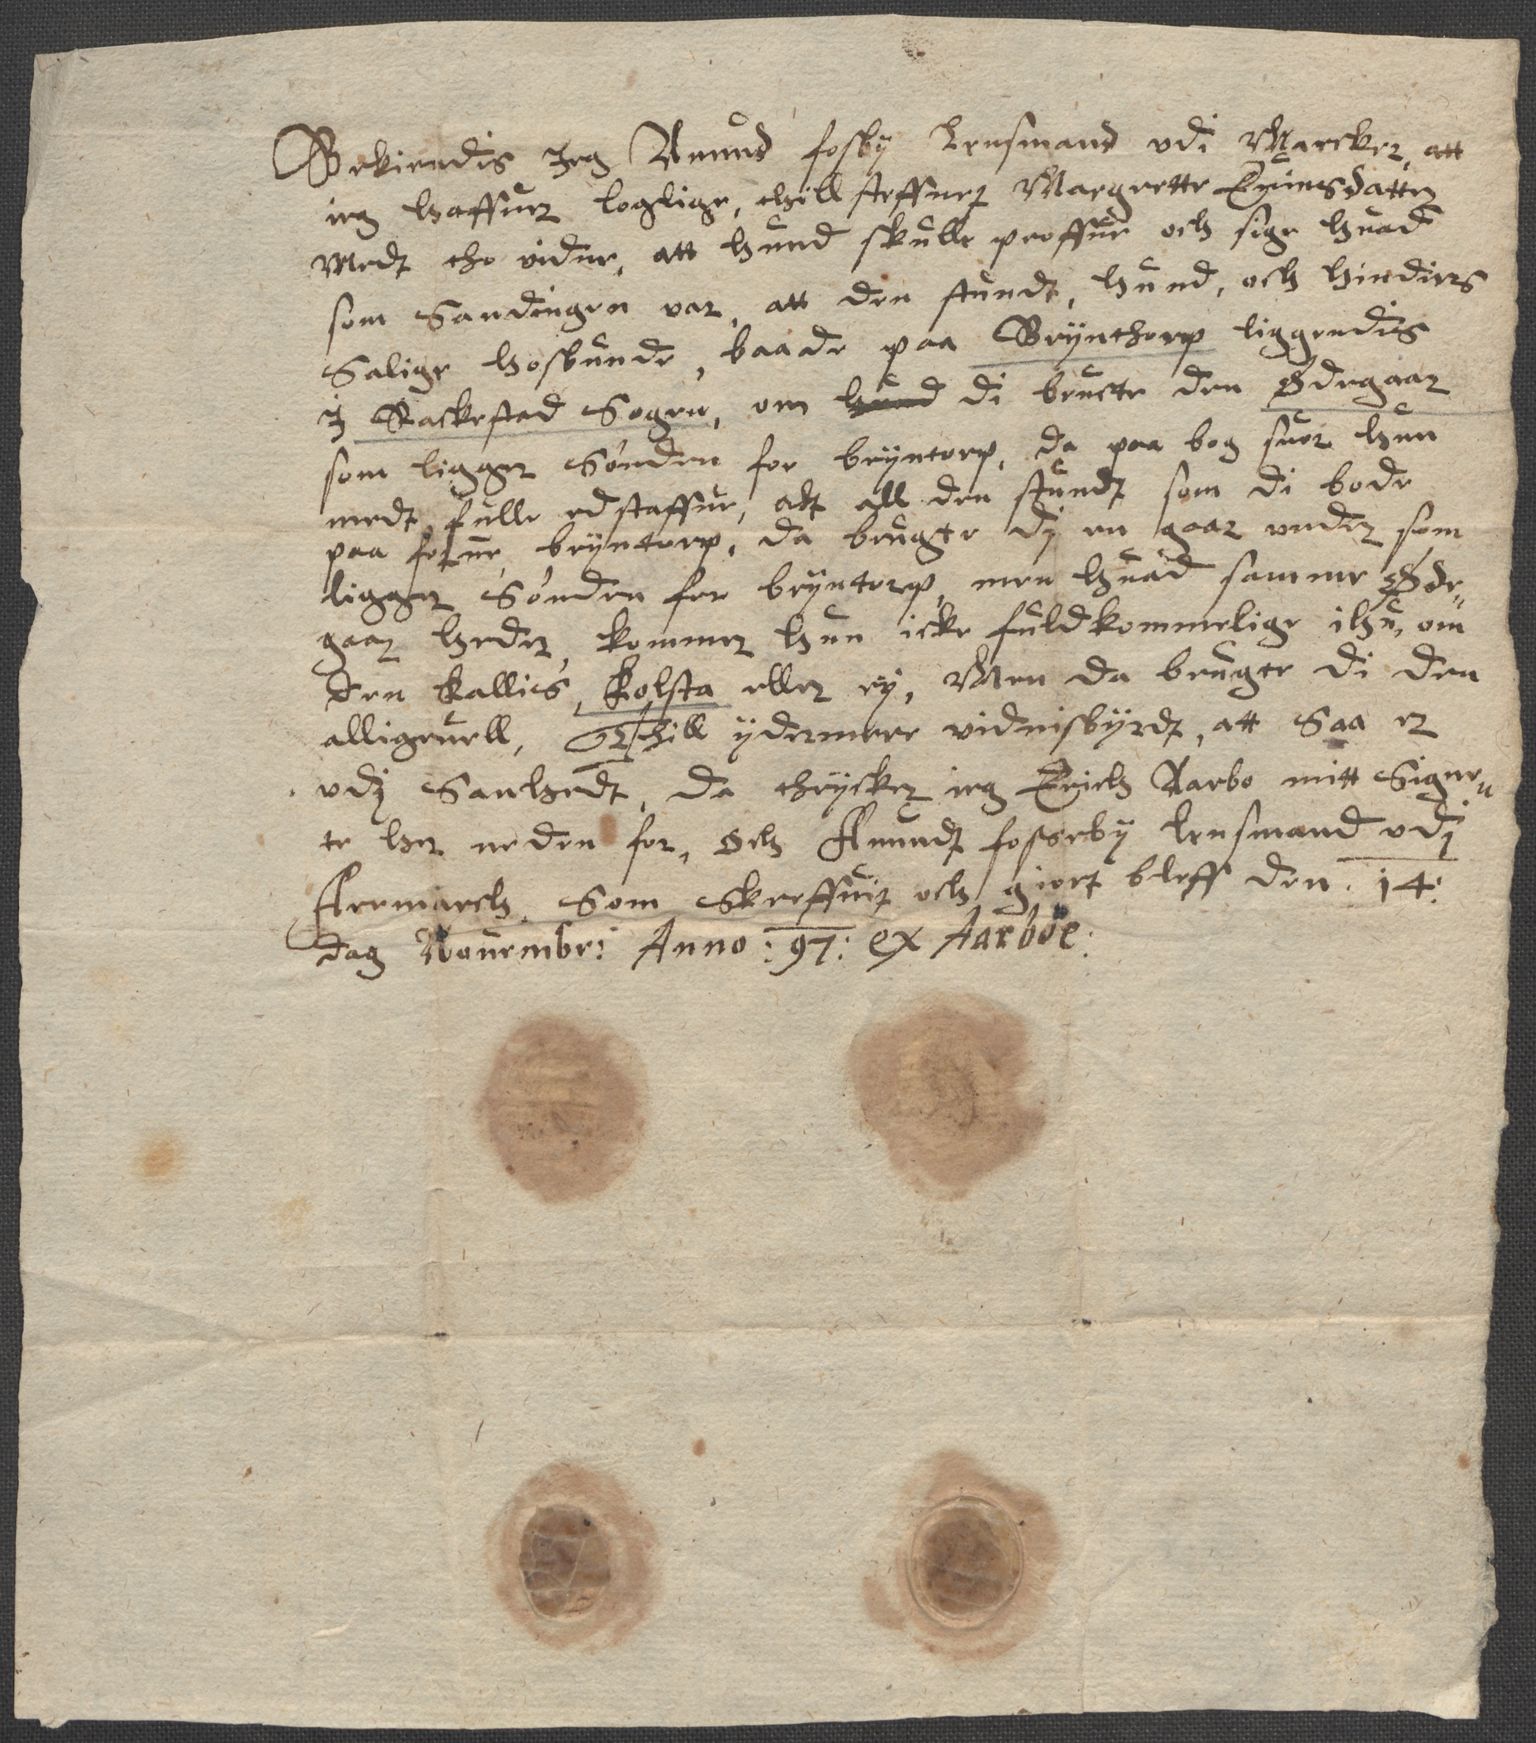 Bekiendis Jeg Amund fosby Lensmand vdi Marcker, att
ieg haffuer loglige, thill steffnet Margrette Eyuindsdatter
Medt tho vidne, att hund skulle proffue och sige huad
som Sandingen var, att den stundt, hund, och hindiers
Salige hosbunde, baade paa Brynthorp liggendis
J Rackestad Sogen, om hund di bructe den Ødegaar
som ligger Sønden for bryntorp, da paa bog suor hun
medt fulle edstaffue, att all den stundt som di bode
paa for:ne bryntorp, da brugte dj en gaar vnder som
ligger Sønden for bryntorp, men huad samme Øde„
gaar heder, kommer hun icke fuldkommelige ihu, om
den kallies, kolsta eller ej, Men da brugte di den
alligeuell, Thill ydermeere vidnisbyrdt, att Saa er
vdj Sanhedt, da thrycker ieg Erich Aarbo mitt Signe„
te her neden for, Och Amundt fosseby lensmand vdj
Arremarch, Som Skreffuit och giort bleff den . 14:
dag Nouembri Anno : 97: ex Aarboe: